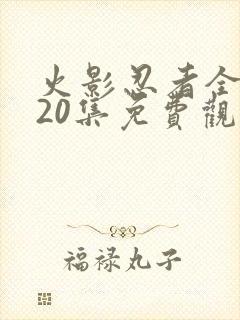 火影忍者全
20集免費觀
福禄丸子